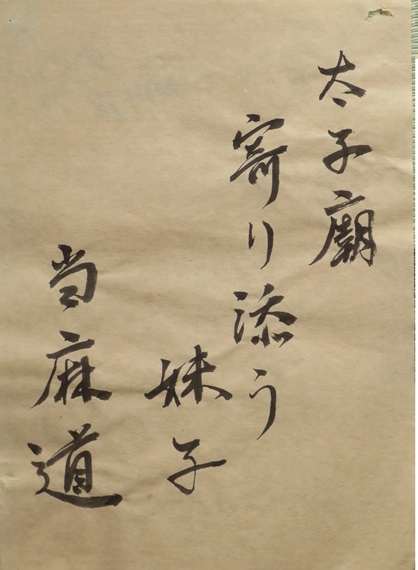 太子廟
寄り添う
妹子
当麻道